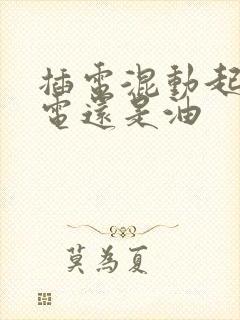 插電混動起
電還是油
莫為夏